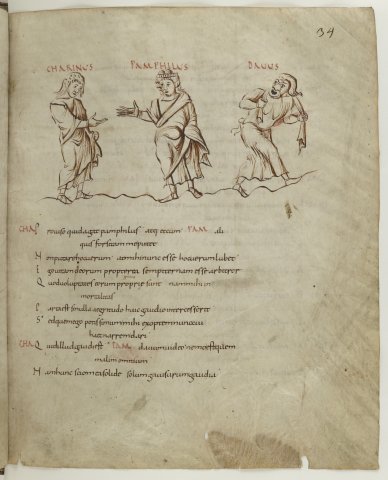 34
CHARINUS PAMPHILUS DAUUS
CHA P rouiso quid agat pamphilus atq; eccum PAM ali
quis forsitan me putet
N on putare hoc uerum at mihi nunc esse hoc uerum lubet
E go uitam deorum propterea sempiternam esse arbitror
Q uod uoluptates eorum propriae sunt nam mihi in
mortalitas
P arta est si nulla aegritudo huic gaudio intercesserit
S ed quem ego potissimum mihi exoptem nunc cui
haec narrem dari
CHA Q uid illud gaudii est PAM dauom uideo nemo est quem
malim omnium
N am hunc scio mea solide solum gauisurum gaudia